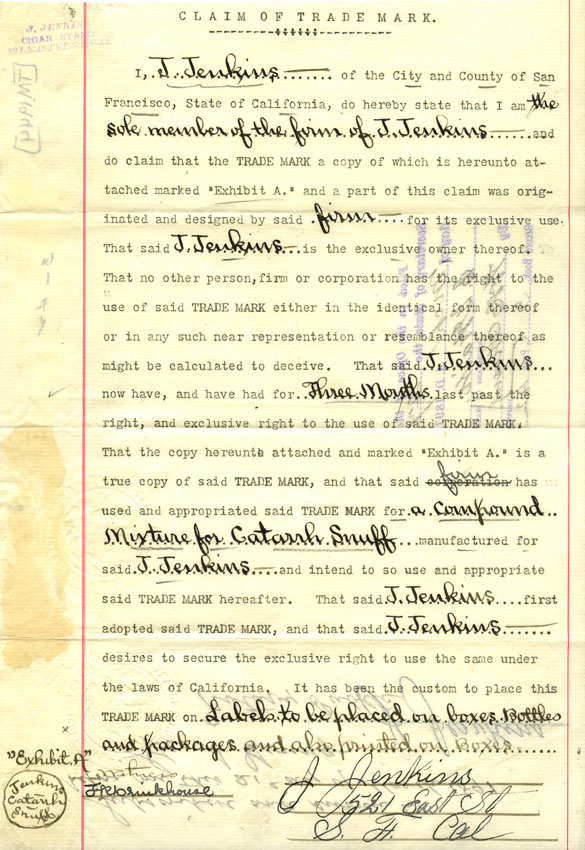 CLAIM OF TRADE MARK.
J. JENKINS
CIGAR STAND
I, J. Jenkins....... of the City and County of San
Francisco, State of California, do hereby state that I am the
sole member of the firm of J. Jenkins.......and
do claim that the TRADE MARK a copy of which is hereunto at-
tached marked "Exhibit A." and a part of this claim was orig-
inated and designed by said .firm....for its exclusive use.
That said J. Jenkins...is the exclusive owner thereof.
That no other person,firm or corporation has the right to the
use of said TRADE MARK either in the identical form thereof
or in any such near representation or resemblance thereof as
might be calculated to deceive. That said J. Jenkins...
now have, and have had for..Three Months.last past the
right, and exclusive right to the use of said TRADE MARK.
That the copy hereunto attached and marked "Exhibit A." is a
firm
true copy of said TRADE MARK, and that said corporation has
used and appropriated said TRADE MARK for.a Compound..
Mixture for Catarrh Snuff...manufactured for
said.J. Jenkins....and intend to so use and appropriate
said TRADE MARK hereafter. That said.J. Jenkins....first
adopted said TRADE MARK, and that said.J. Jenkins.......
desires to secure the exclusive right to use the same under
the laws of California. It has been the custom to place this
TRADE MARK on.Labels to be placed on boxes Bottles
and packages and also printed on Boxes.....
"Exhibit A"
Jenkins
Catarrh
Snuff
J Jenkins
521 East St
S. F. Cal